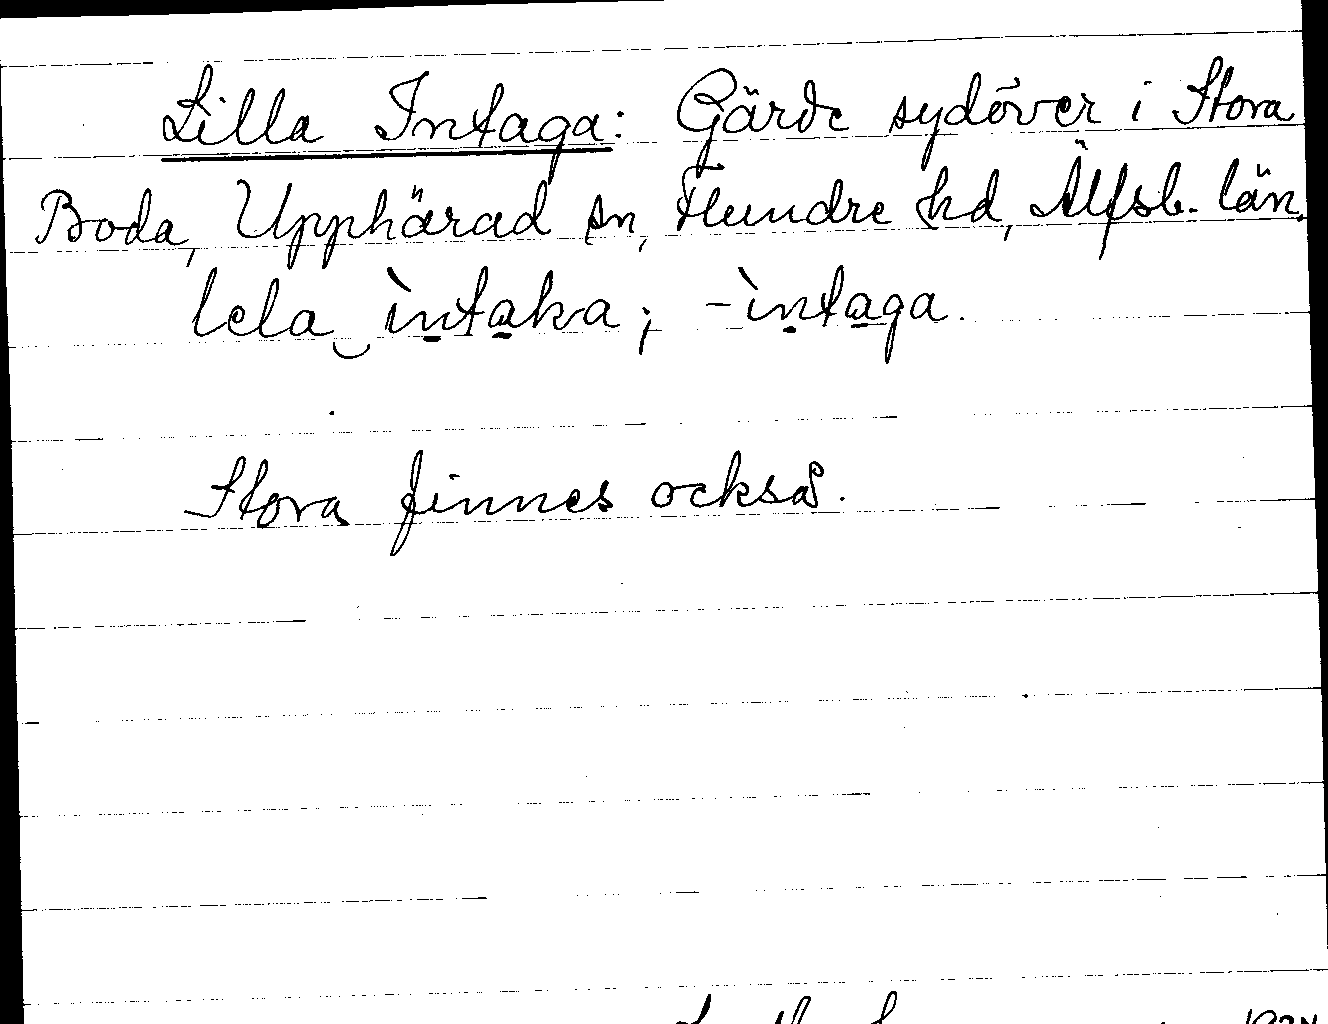 Lilla Intaga: Gärde sydöver i Stora
Boda, Upphärad sn, Flundre hd, Älfsb. län.
lela ìntaka; -ìntaga.
Stora finnes också.